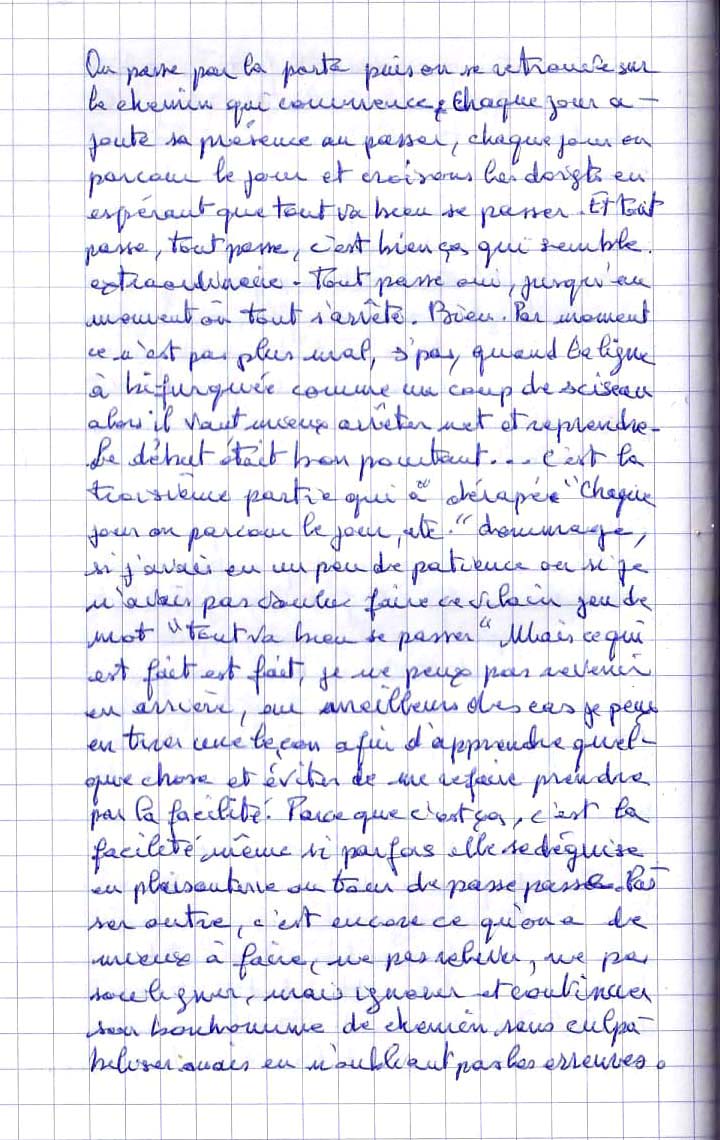 On passe par la porte puis on se retrouve sur
le chemin qui commence, chaque jour a-
joute sa présence au passer, chaque jour on
parcour le jour et croisons les doigts en
espérant que tout va bien se passer. Et tout
passe, tout passe, c'est bien ça qui semble
extraordinaire. Tout passe oui, jusqu'au
moment où tout s'arrête. Bien. Par moment
ce n'est pas plus mal, s'pas, quand la ligne
à bifurquée comme un coup de sciseau
alors il vaut mieux arrêter net et reprendre.
Le début était bon pourtant... C'est la
troisième partie qui à "dérapée" "Chaque
jour on parcour le jour, etc." dommage,
si j'avais eu un peu de patience ou si je
n'avais pas voulu faire ce vilain jeu de
mot "tout va bien se passer" Mais ce qui
est fait est fait, je ne peux pas revenir
en arrière, au meilleurs des cas je peux
en tirer une leçon afin d'apprendre quel-
que chose et éviter de me refaire prendre
par la facilité. Parce que c'est ça, c'est la
facilité même si parfois elle se déguise
en plaisanterie ou tour de passe passe. Pas
ser outre, c'est encore ce qu'on a de
mieux à faire, ne pas relever, ne pas
souligner, mais ignorer et continuer
son bonhomme de chemin sans culpa-
biliser mais en n'oubliant pas les erreures.